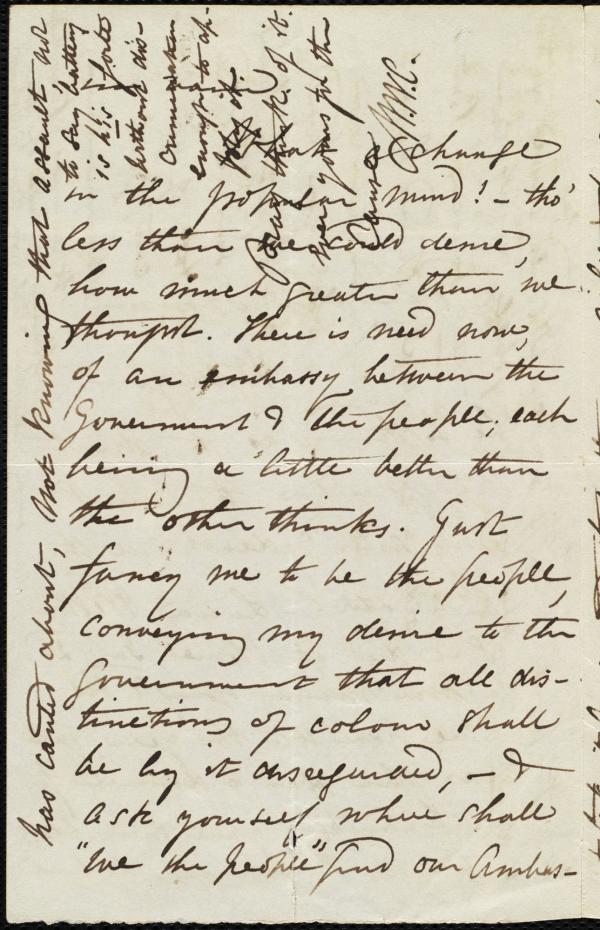 change
in the popular mind! - tho'
less than we could desire,
how much greater than we
thought. There is need now,
of an embassy between the
Government & the people, each
being a little better than
the other thinks. Just
fancy me to be the people,
conveying my desire to the
Government that all dis-
tinctions of colour shall
be by it disregarded, - &
ask yourself where shall
"We the people" find our Ambas-
has canted about, not knowing that assault not
to say battery
is his forte
without dis-
crimination
enough to ap-
ply it.
think of it.
Ever yours for the
cause